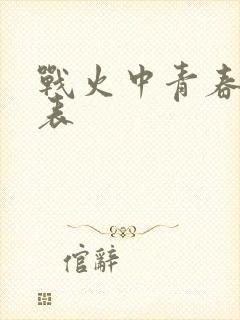 戰火中青春
表
倌辭